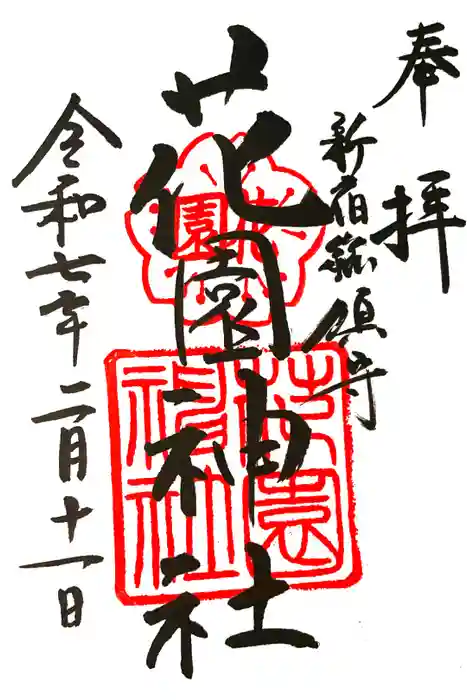 奉拝
新宿総鎮守
花園神社
令和七年二月十一日
花園
花園神社